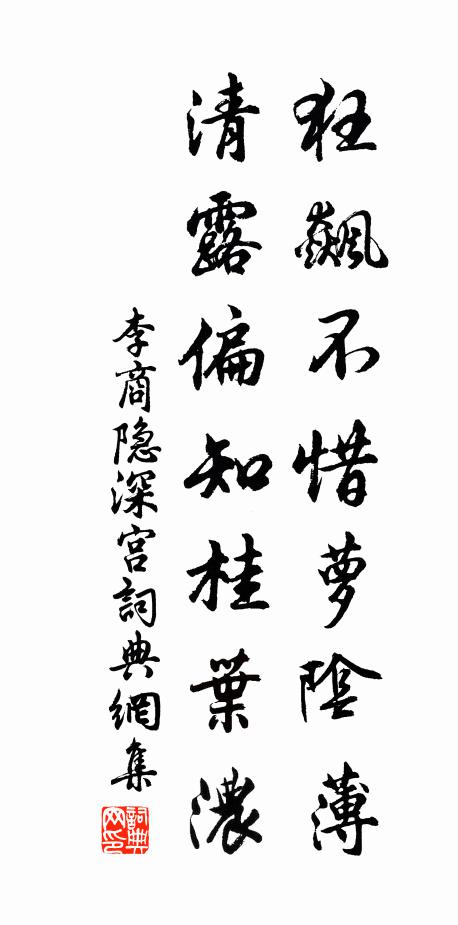 狂飆不惜萝陰薄
清露偏知桂葉濃
李商隐深宫詞典網集
詞典网印